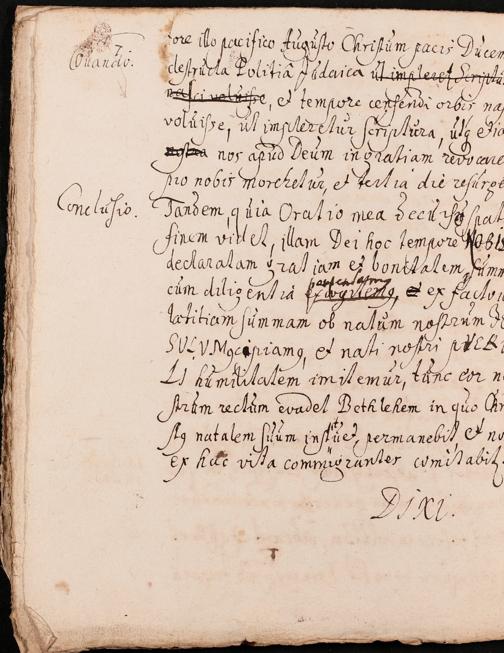 7.
Quando.
ore illo pacifico Augusto Christum pacis Ducem
destructa Politiâ Judaica ut impleret Scriptu
nasci voluisse, et tempore censendi orbis na
voluisse, ut impleretur scriptura, utq
nos apud Deum in gratiam
pro nobis moreretur, et tertia die resurge
Conclusio.
Tandem, quia Oratio mea spat
finem videt, illam Dei hoc tempore NOBIS
declaratam gratiam et bonitatem, summ
cum diligentia ex facto
lætitiam summam ob natum nostrum
SULUM et nati nostri PUERI
LI humilitatem imitemur, tunc cor no
strum rectum evadet Bethlehem in quo Chri
stq natalem suum permanebit et no
ex hac vita commigrantes comitabit
DIXI.